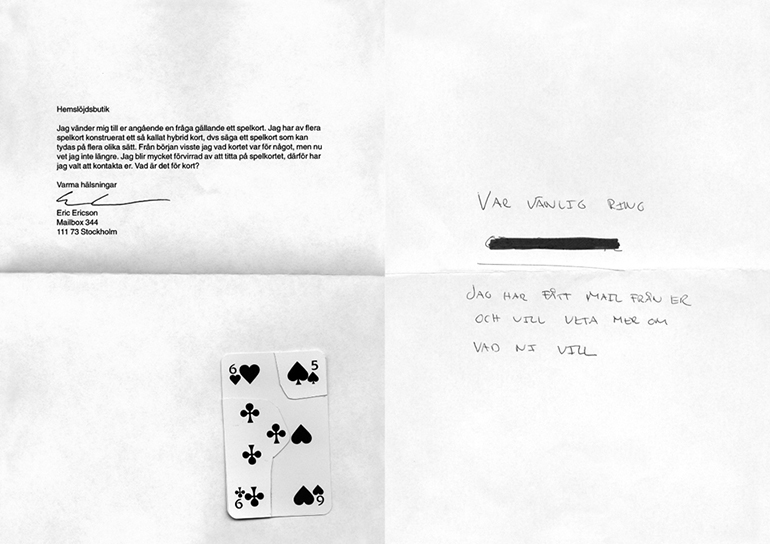 Hemslöjdsbutik
Jag vänder mig till er angående en fråga gällande ett spelkort. Jag har av flera
spelkort konstruerat ett så kallat hybrid kort, dvs säga ett spelkort som kan
tydas på flera olika sätt. Från början visste jag vad kortet var för något, men nu
vet jag inte längre. Jag blir mycket förvirrad av att titta på spelkortet, därför har
jag valt att kontakta er. Vad är det för kort?
Varma hälsningar
Eric Ericson
Mailbox 344
111 73 Stockholm
6 5
6 9
VAR VÄNLIG RING
JAG HAR FÅTT MAIL FRÅN ER
OCH VILL VETA MER OM
VAD NI VILL